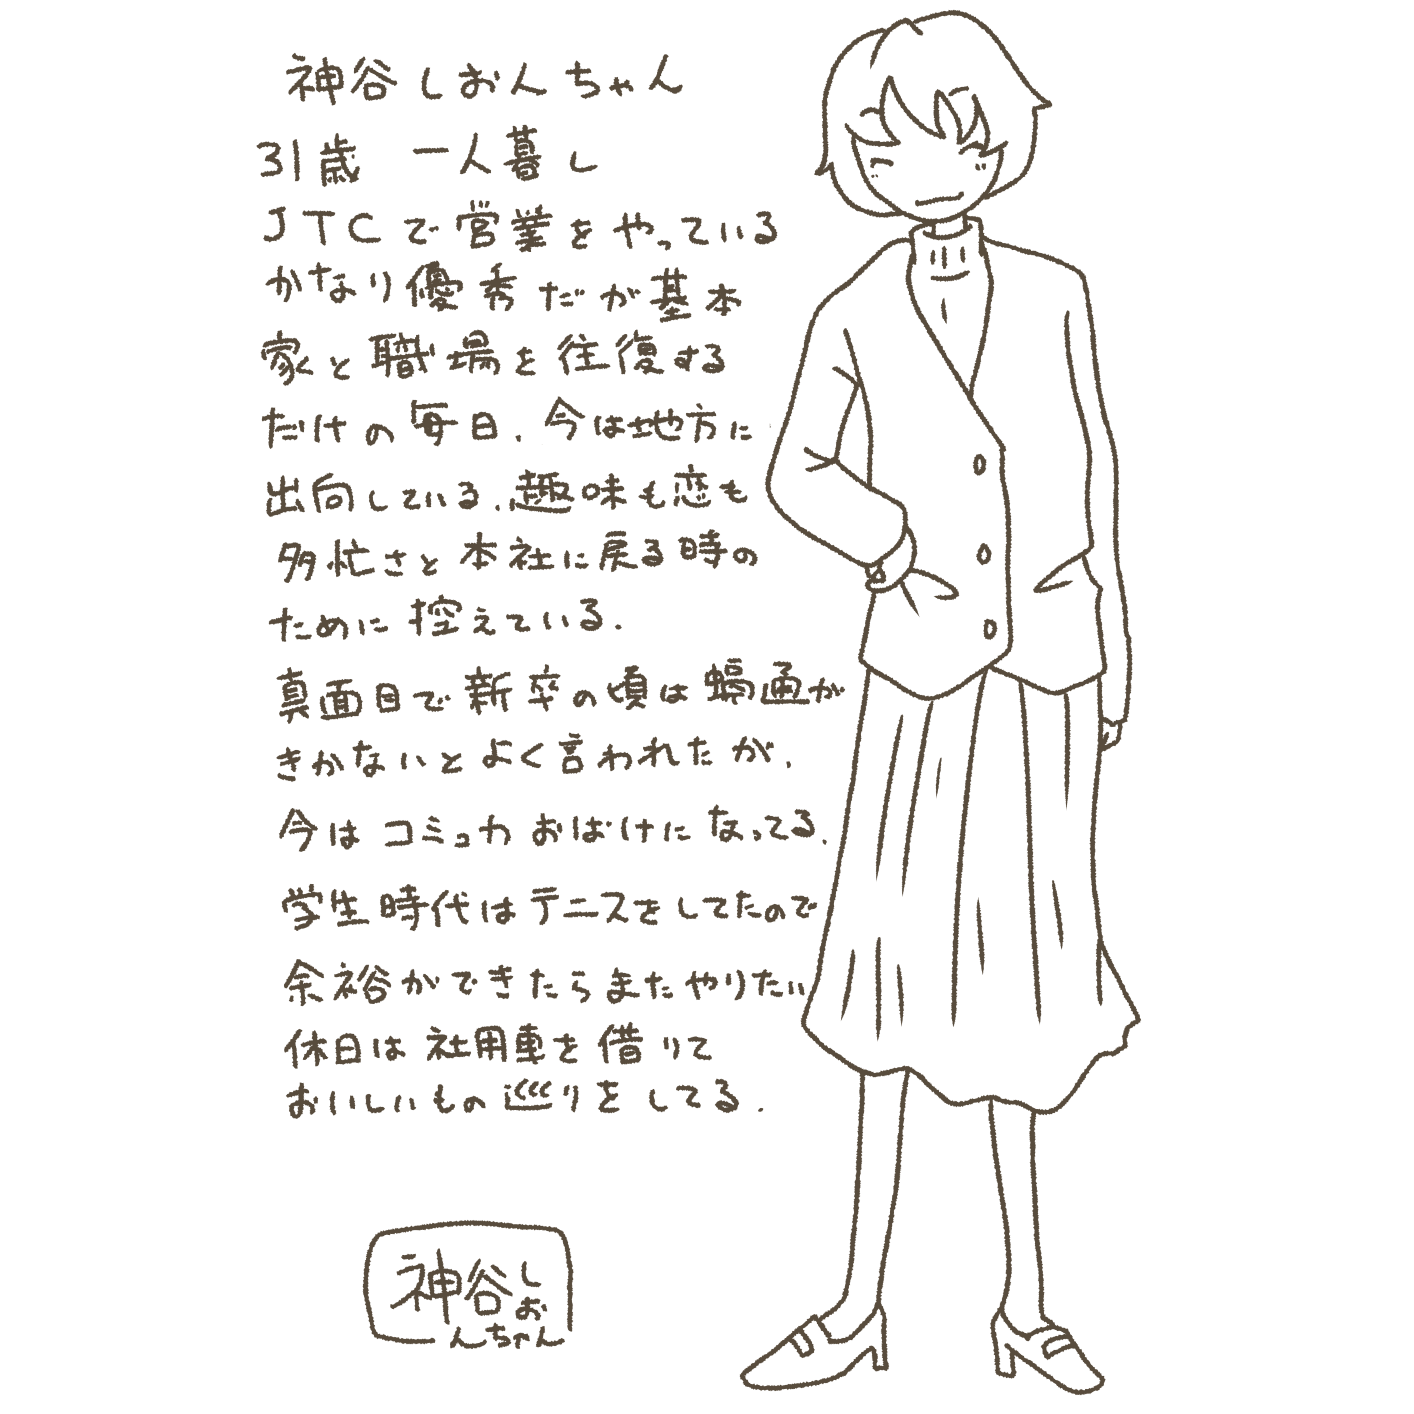 神谷しおんちゃん
31歳 一人暮し
JTCで営業をやっている
かなり優秀だが基本
家と職場を往復する
だけの毎日.今は地方に
出向している.趣味も恋も
多忙さと本社に戻る時の
ために控えている.
真面目で新卒の頃は融通が
きかないとよく言われたが.
今はコミュ力おばけになってる.
学生時代はテニスをしてたので
余裕ができたらまたやりたい
休日は社用車を借りて
おいしいもの巡りをしてる.
神谷しお
んちゃん